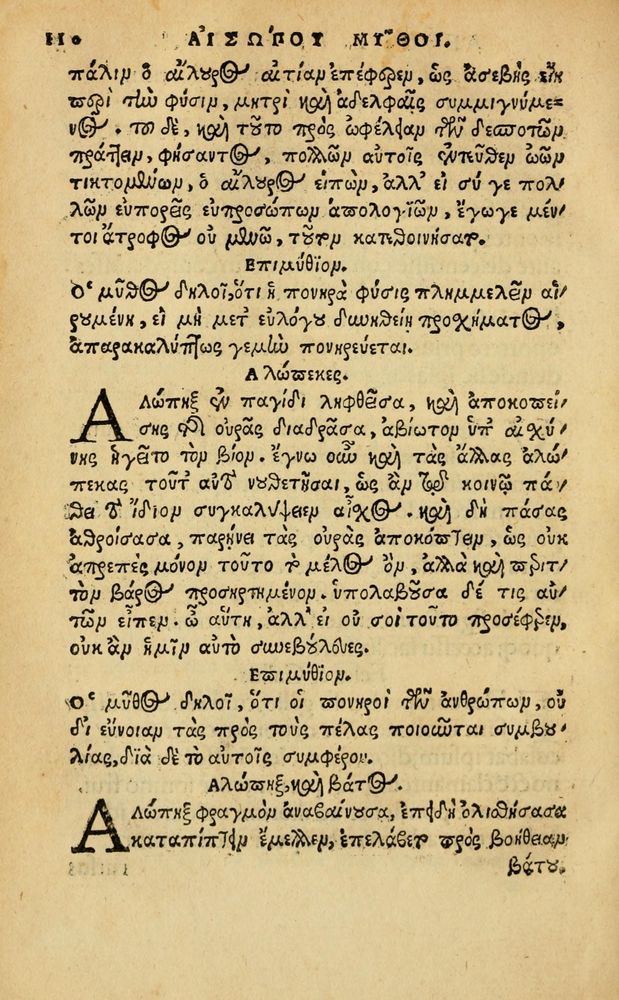 110 ΑΙΣΩΠΟΥ ΜΥΘΟΙ.
πάλιν ὁ αἴλουρος αἰτίαν ἐπέφερεν, ὡς ἀσεβὴς εἴη
περὶ τὴν φύσιν, μητρὶ καὶ ἀδελφαῖς συμμιγνύμε-
νος. τοῦ δὲ, καὶ τοῦτο πρὸς ὠφέλειαν τῶν δεσποτῶν
πράττειν, φήσαντος, πολλῶν αὐτοῖς ἐντεῦθεν ὠῶν
τικτομένων, ὁ αἴλουρος εἰπὼν, ἀλλ' εἰ σύ γε πολ-
λῶν εὐπορεῖς εὐπροσώπων ἀπολογιῶν, ἔγωγε μέν-
τοι ἄτροφος οὐ μενῶ, τοῦτον κατεθοινήσατο.
Επιμύθιον.
Ὁ μῦθος δηλοῖ, ὅτι ἡ πονηρὰ φύσις πλημμελεῖν αἱ-
ρουμένη, εἰ μὴ μετ' εὐλόγου δυνηθείη προσχήματος,
ἀπαρακαλύπτως γε μὴν πονηρεύεται.
Αλώπεκες.
Αλώπηξ ἐν παγίδι ληφθεῖσα, καὶ ἀποκοπεί-
σης τῆς οὐρᾶς διαδρᾶσα, ἀβίωτον ὑπ' αἰσχύ-
νης ἡγεῖτο τὸν βίον. ἔγνω οὖν καὶ τὰς ἄλλας ἀλώ-
πεκας τοῦτ' αὐτὸ νουθετῆσαι, ὡς ἂν τῷ κοινῷ πά-
θει τὸ ἴδιον συγκαλύψειεν αἶσχος. καὶ δὴ πάσας
ἀθροίσασα, παρῄνει τὰς οὐρὰς ἀποκόπτειν, ὡς οὐκ
ἀπρεπὲς μόνον τοῦτο τὸ μέλος ὂν, ἀλλὰ καὶ περιτ-
τὸν βάρος προσηρτημένον. ὑπολαβοῦσα δέ τις αὐ-
τῶν εἶπεν. ὦ αὕτη, ἀλλ' εἰ οὐ σοὶ τοῦτο προσέφερεν,
οὐκ ἂν ἡμῖν αὐτὸ συνεβούλευες.
Επιμύθιον.
Ὁ μῦθος δηλοῖ, ὅτι οἱ πονηροὶ τῶν ἀνθρώπων, οὐ
δι' εὔνοιαν τὰς πρὸς τοὺς πέλας ποιοῦνται συμβου-
λίας, διὰ δὲ τὸ αὐτοῖς συμφέρον.
Αλώπηξ, καὶ βάτος.
Αλώπηξ φραγμὸν ἀναβαίνουσα, ἐπειδὴ ὀλισθήσασα
καταπίπτειν ἔμελλεν, ἐπελάβετο πρὸς βοήθειαν
βάτου.